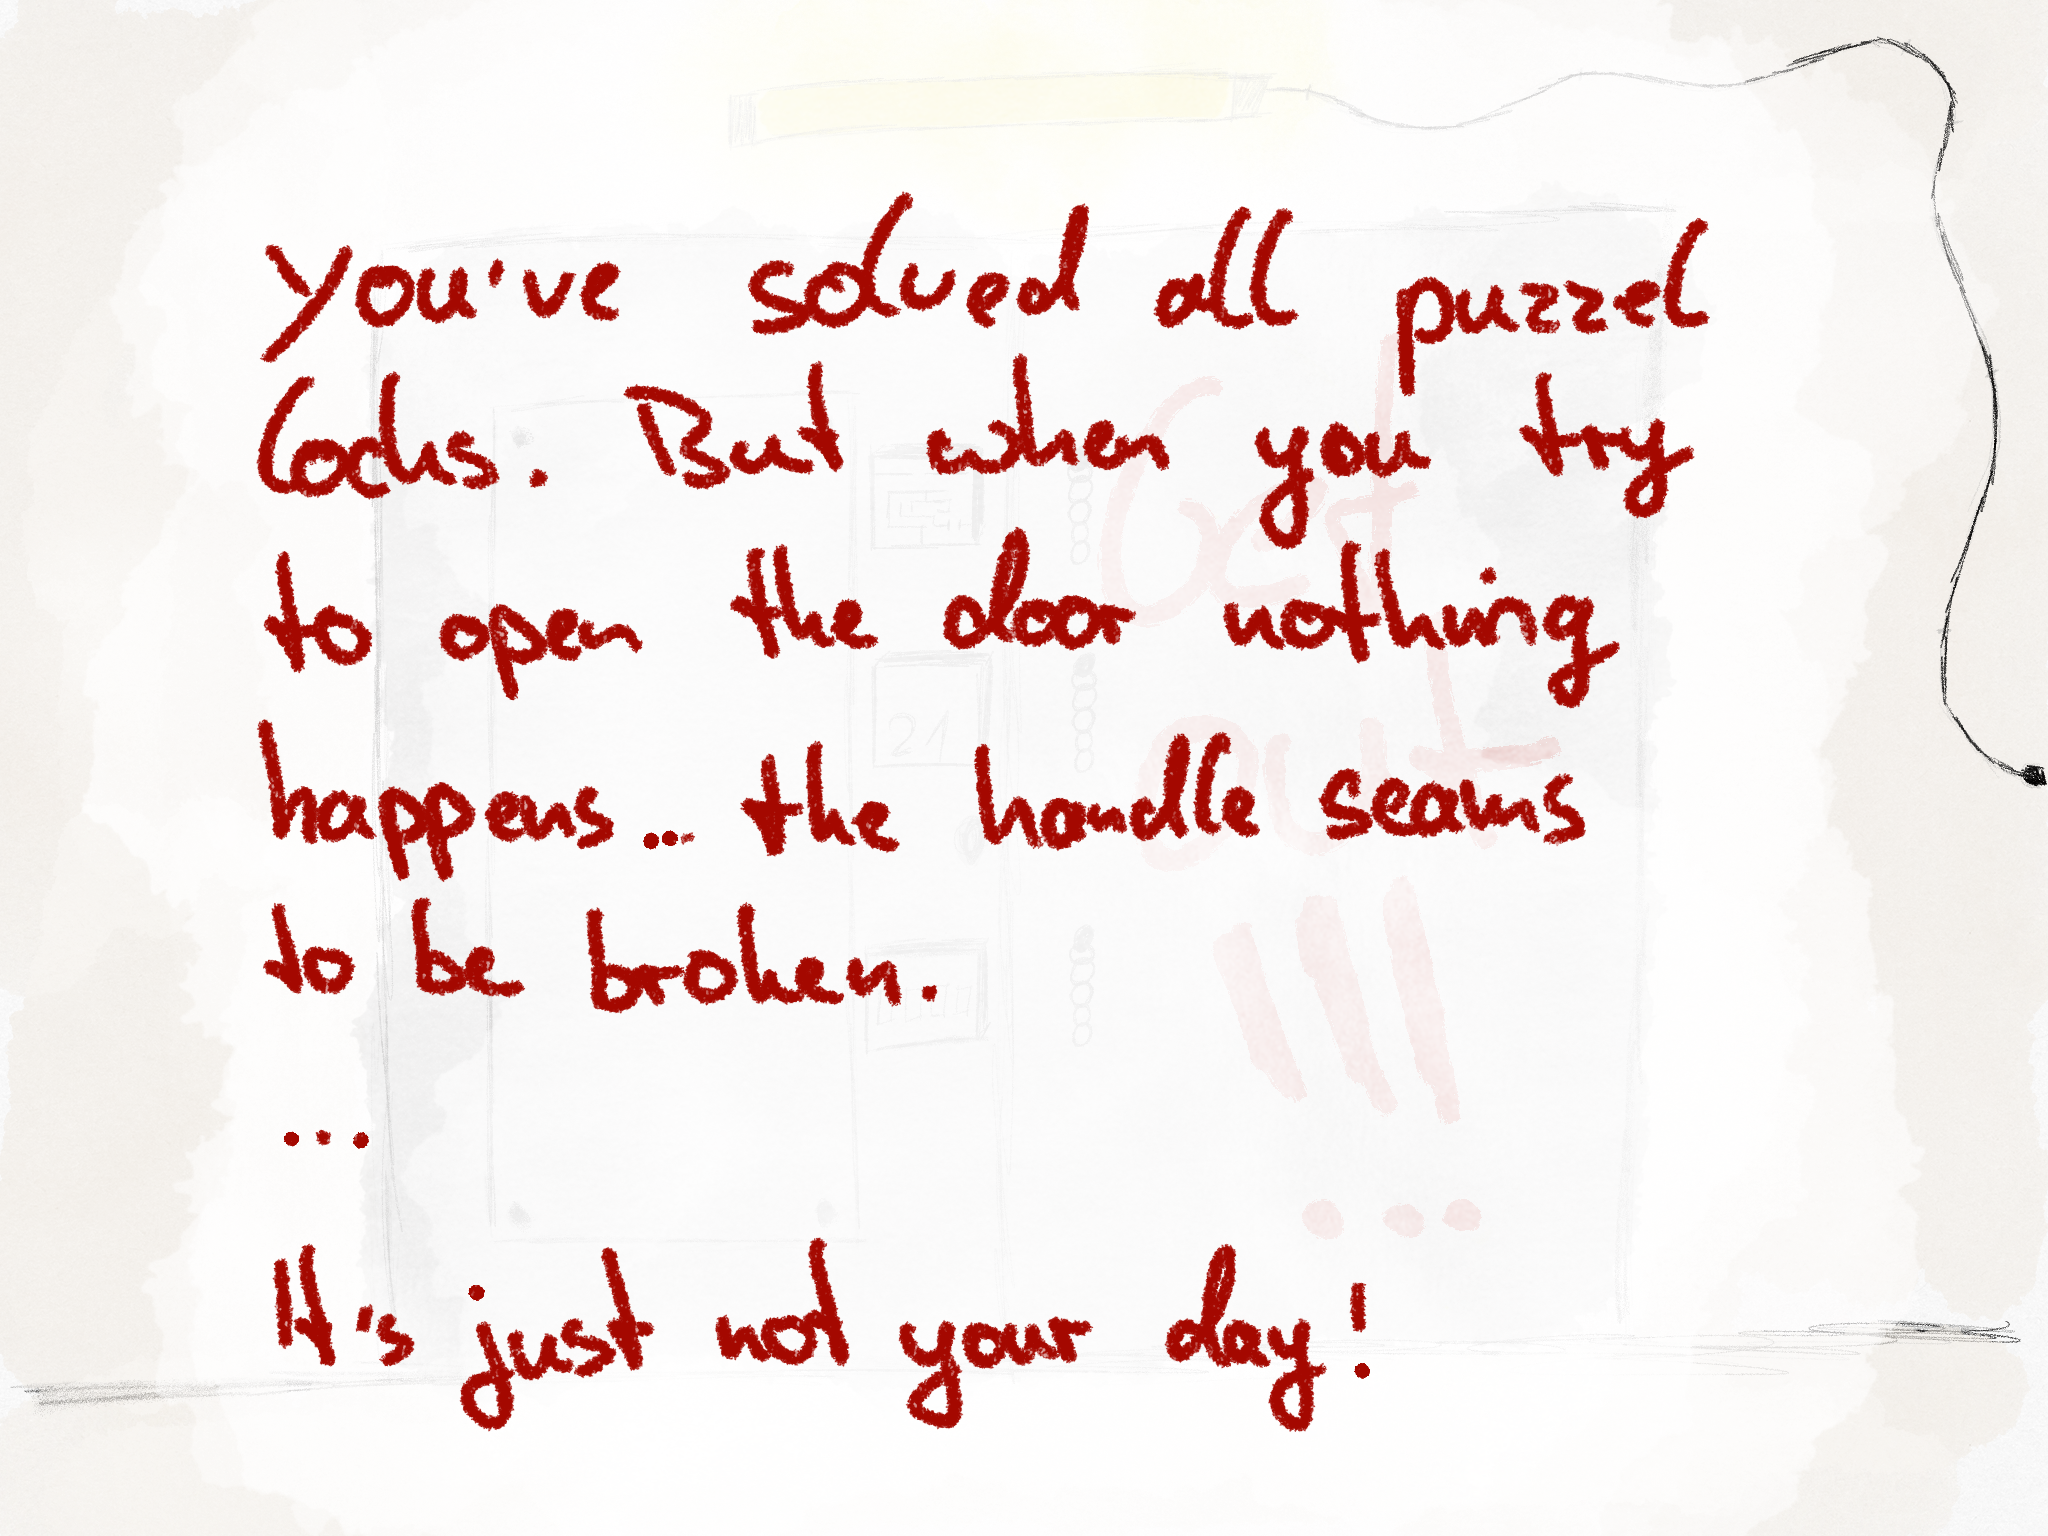 You've solved all puzzel
locks. But when you try
to open the door nothing
happens... the handle seams
to be broken.
...
It's just not your day!
Get
out
!!!
21